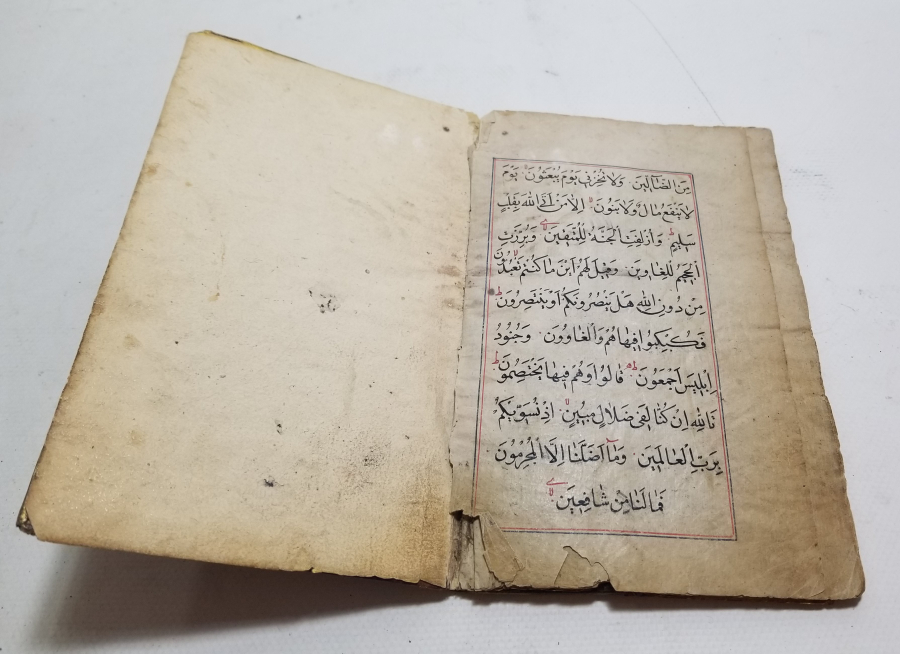 مِنَ الضَّآلِّينَ وَلَا تُخْزِنِي يَوْمَ يُبْعَثُونَ يَوْمَ
لَا يَنْفَعُ مَالٌ وَلَا بَنُونَ اِلَّا مَنْ اَتَى اللّٰهَ بِقَلْبٍ
سَلِيمٍ وَاُزْلِفَتِ الْجَنَّةُ لِلْمُتَّقِينَ وَبُرِّزَتِ
الْجَحِيمُ لِلْغَاوِينَ وَقِيلَ لَهُمْ اَيْنَ مَا كُنْتُمْ تَعْبُدُونَ
مِنْ دُونِ اللّٰهِ هَلْ يَنْصُرُونَكُمْ اَوْ يَنْتَصِرُونَ
فَكُبْكِبُوا فِيهَا هُمْ وَالْغَاوُونَ وَجُنُودُ
اِبْلِيسَ اَجْمَعُونَ قَالُوا وَهُمْ فِيهَا يَخْتَصِمُونَ
تَاللّٰهِ اِنْ كُنَّا لَفِي ضَلَالٍ مُبِينٍ اِذْ نُسَوِّيكُمْ
بِرَبِّ الْعَالَمِينَ وَمَٓا اَضَلَّنَا اِلَّا الْمُجْرِمُونَ
فَمَا لَنَا مِنْ شَافِعِينَ